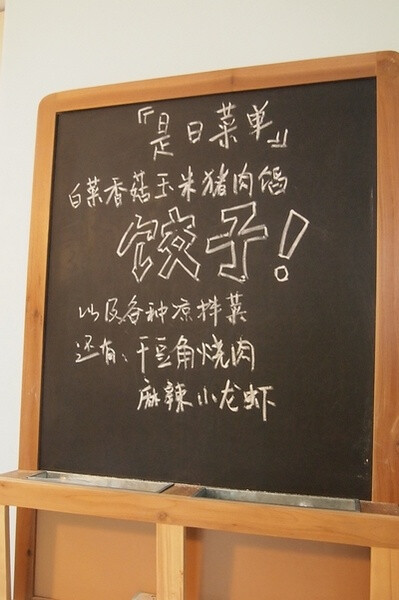 『是日菜单』
白菜香菇玉米猪肉馅
饺子！
以及各种凉拌菜
还有、干豆角烧肉
麻辣小龙虾